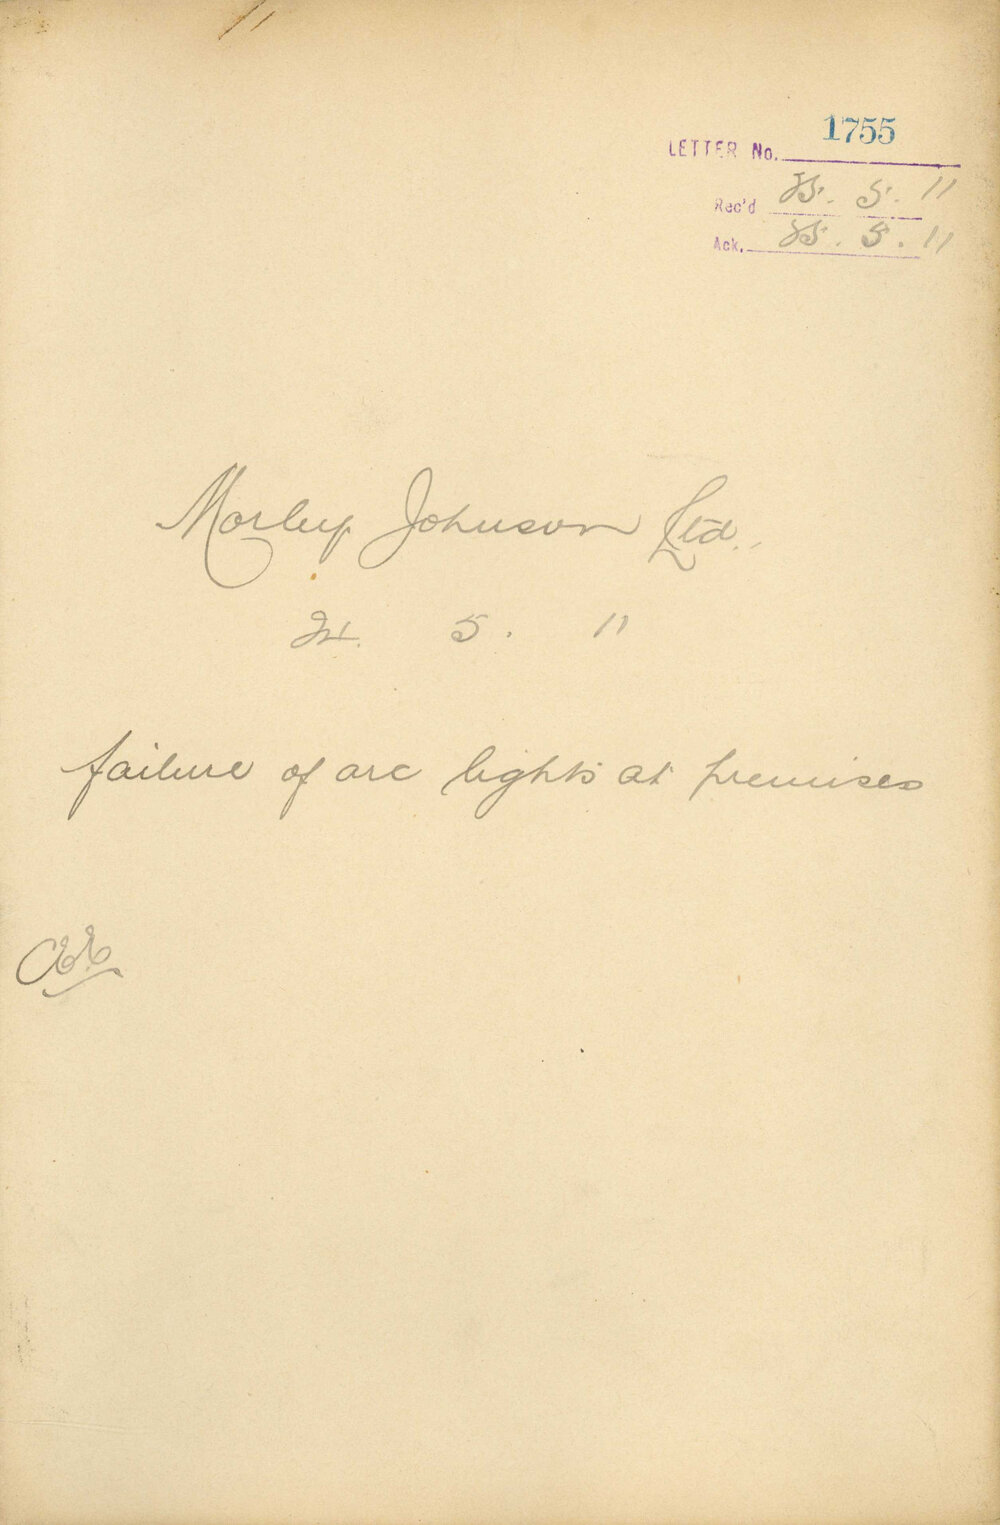 LETTER No. 1755
Rec'd 25. 5. 11
Ack. 25. 5. 11
Morley Johnson Ltd.
24. 5. 11
failure of arc lights at premises